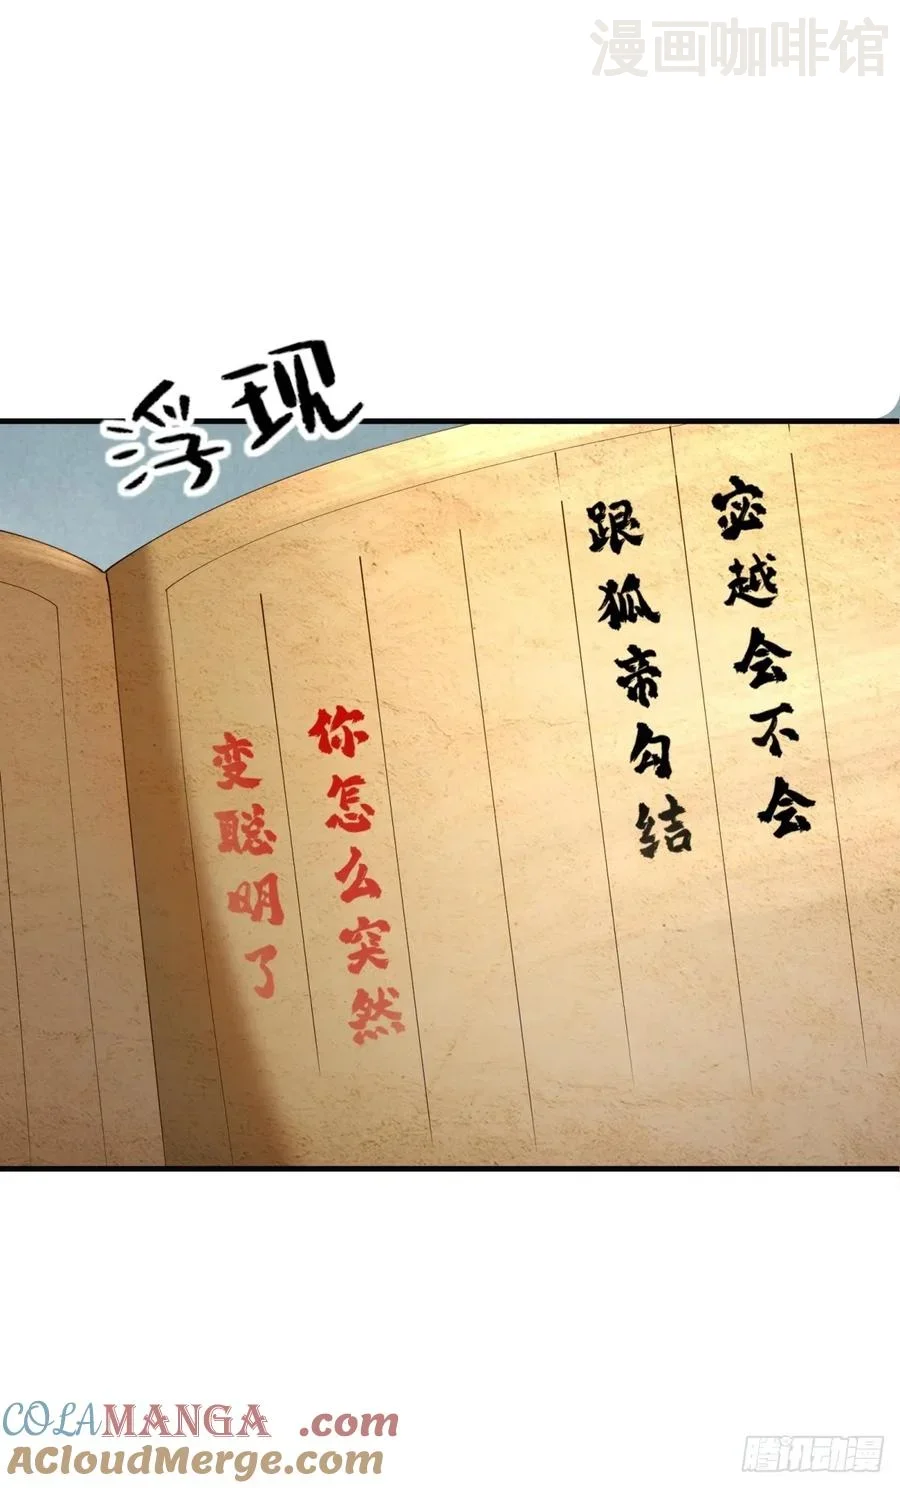 漫画咖啡馆
浮现
宓越会不会
跟狐帝勾结
你怎么突然
变聪明了
COLAMANGA.com
ACloudMerge.com
腾讯动漫